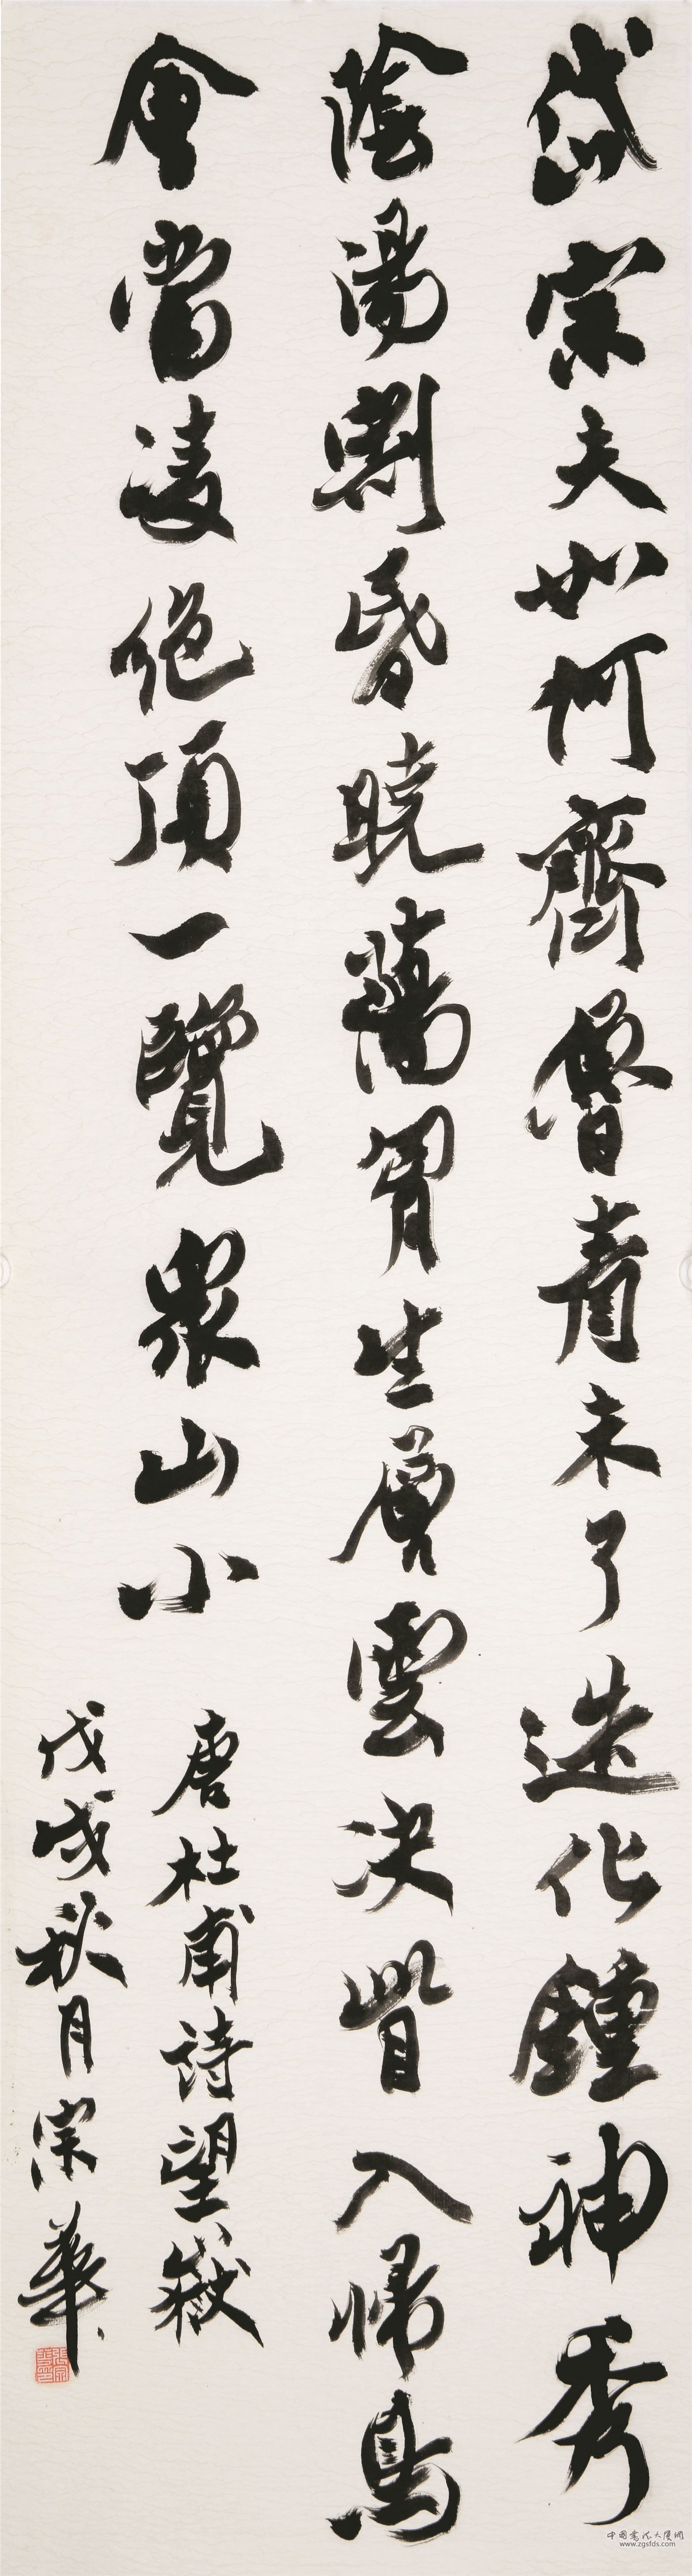 岱宗夫如何齊魯青未了造化鍾神秀
陰陽割昏曉蕩胷生層雲決眥入歸鳥
會當凌絕頂一覽眾山小
唐杜甫詩望嶽
戊戌秋月宗華
中國書法大厦網
www.zgsfds.com